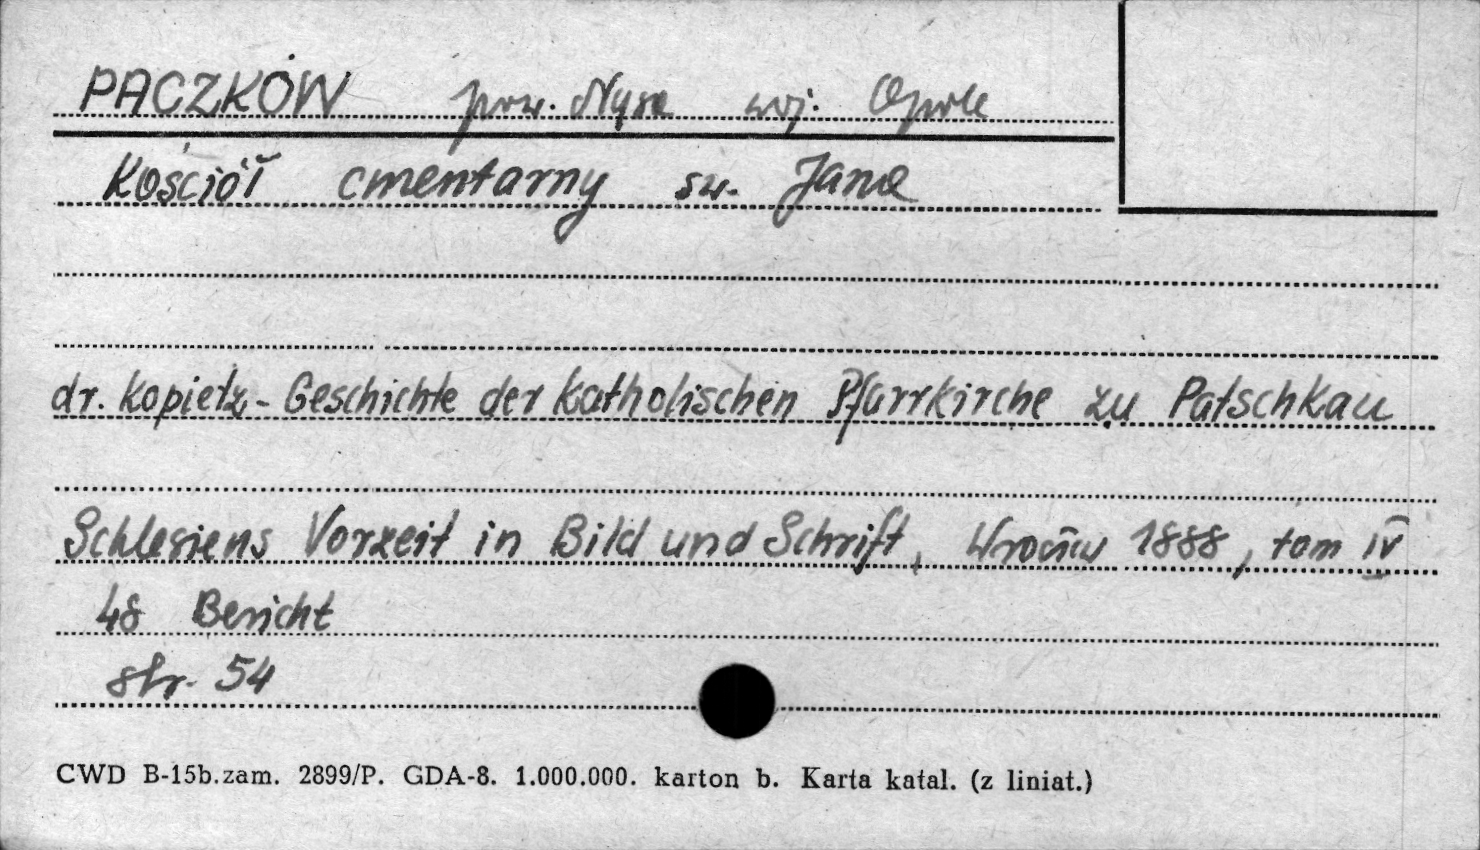 PACZKÓW pow. Nysa woj. Opole
Kościół cmentarny św. Jana
dr. Kopietz - Geschichte der katholischen Pfarrkirche zu Patschkau
Schlesiens Vorzeit in Bild und Schrift, Wrocław 1888, tom IV
48 Bericht
str. 54
CWD B-15b.zam. 2899/P. GDA-8. 1.000.000. karton b. Karta katal. (z liniat.)